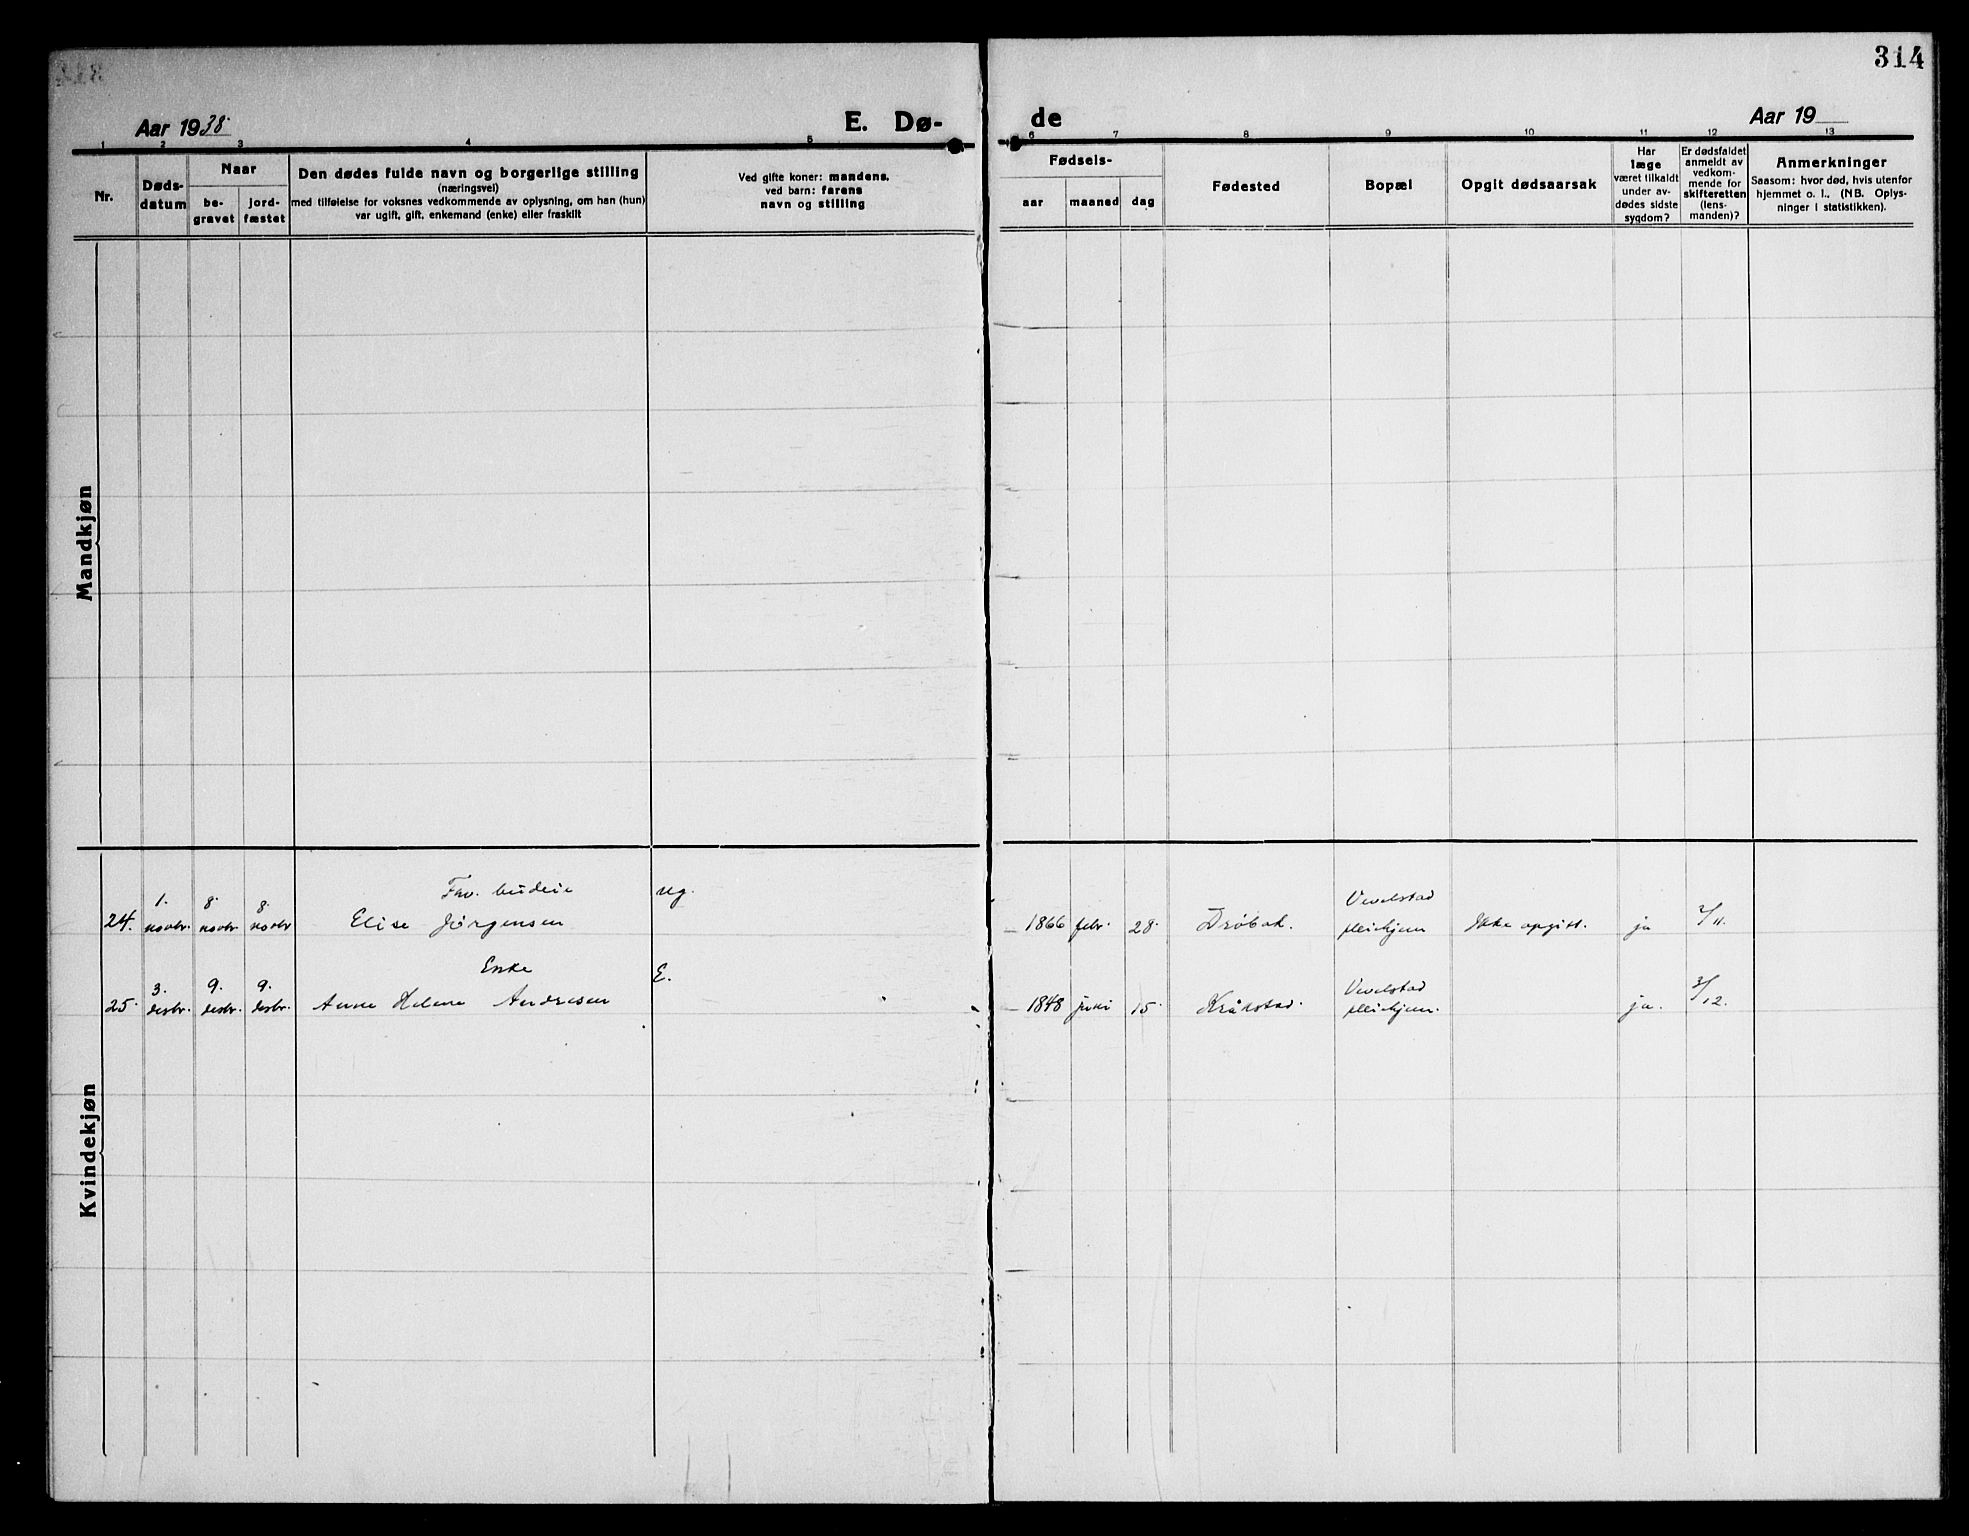 314
Aar 1938
E. Dø-
de
Aar 19
1 2 3 4 5 6 7 8 9 10 11 12 13
Nr.
Døds-
datum
Naar
be-
gravet
jord-
fæstet
Den dødes fulde navn og borgerlige stilling
(næringsvei)
med tilføielse for voksnes vedkommende av oplysning, om han (hun)
var ugift, gift, enkemand (enke) eller fraskilt
Ved gifte koner: mandens.
ved barn: farens
navn og stilling
Fødsels-
aar
maaned
dag
Fødested
Bopæl
Opgit dødsaarsak
Har
læge
været tilkaldt
under av-
dødes sidste
sygdom?
Er dødsfaldet
anmeldt av
vedkom-
mende for
skifteretten
(lens-
manden)?
Anmerkninger
Saasom: hvor død, hvis utenfor
hjemmet o. l., (NB. Oplys-
ninger i statistikken).
Mandkjøn
Kvindekjøn
1. 8. 8. Fhv. budeie ug. Vevelstad
24. novbr. novbr. novbr Elise Jørgensen 1866 febr. 28. Drøbak. pleiehjem Ikke opgitt. ja 2/11.
3. 9. 9. Enke E. Vevelstad
25. desbr. desbr. desbr. Anne Helene Andresen 1848 juni 15. Kråkstad. pleiehjem. ja. 3/12.